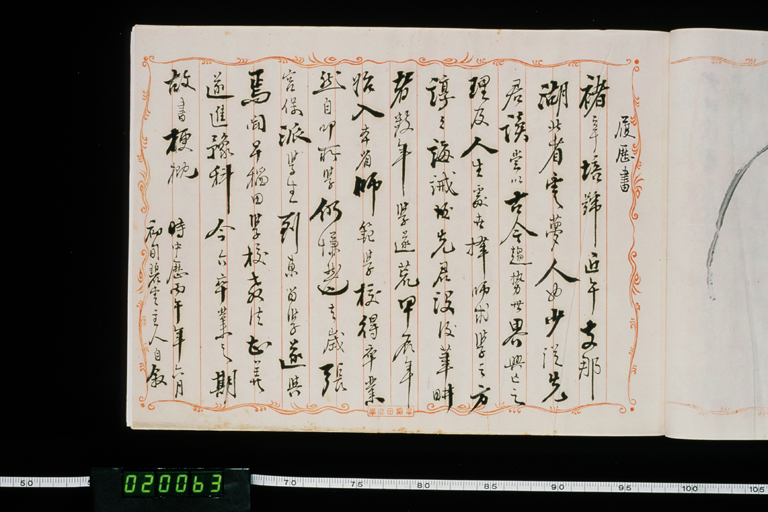 履歴書
褚辛培號近午支那
湖北省雲夢人也少從先
君讀嘗以古今趨勢世界興亡之
理及人生處世擇師求學之方
諄々誨誡 先君設後筆畊
者数年學遂荒甲辰年
始入本省師範學校得卒業
然自叩所學仍慊之歳張
宮保派學生到東留學遂與
焉同早稲田學校清
遂進豫科今六卒業之期
故書梗概
時中歴丙午年六月
初旬碧雲主人自叙
020063
50
70
75
80
85
90
95
100
105